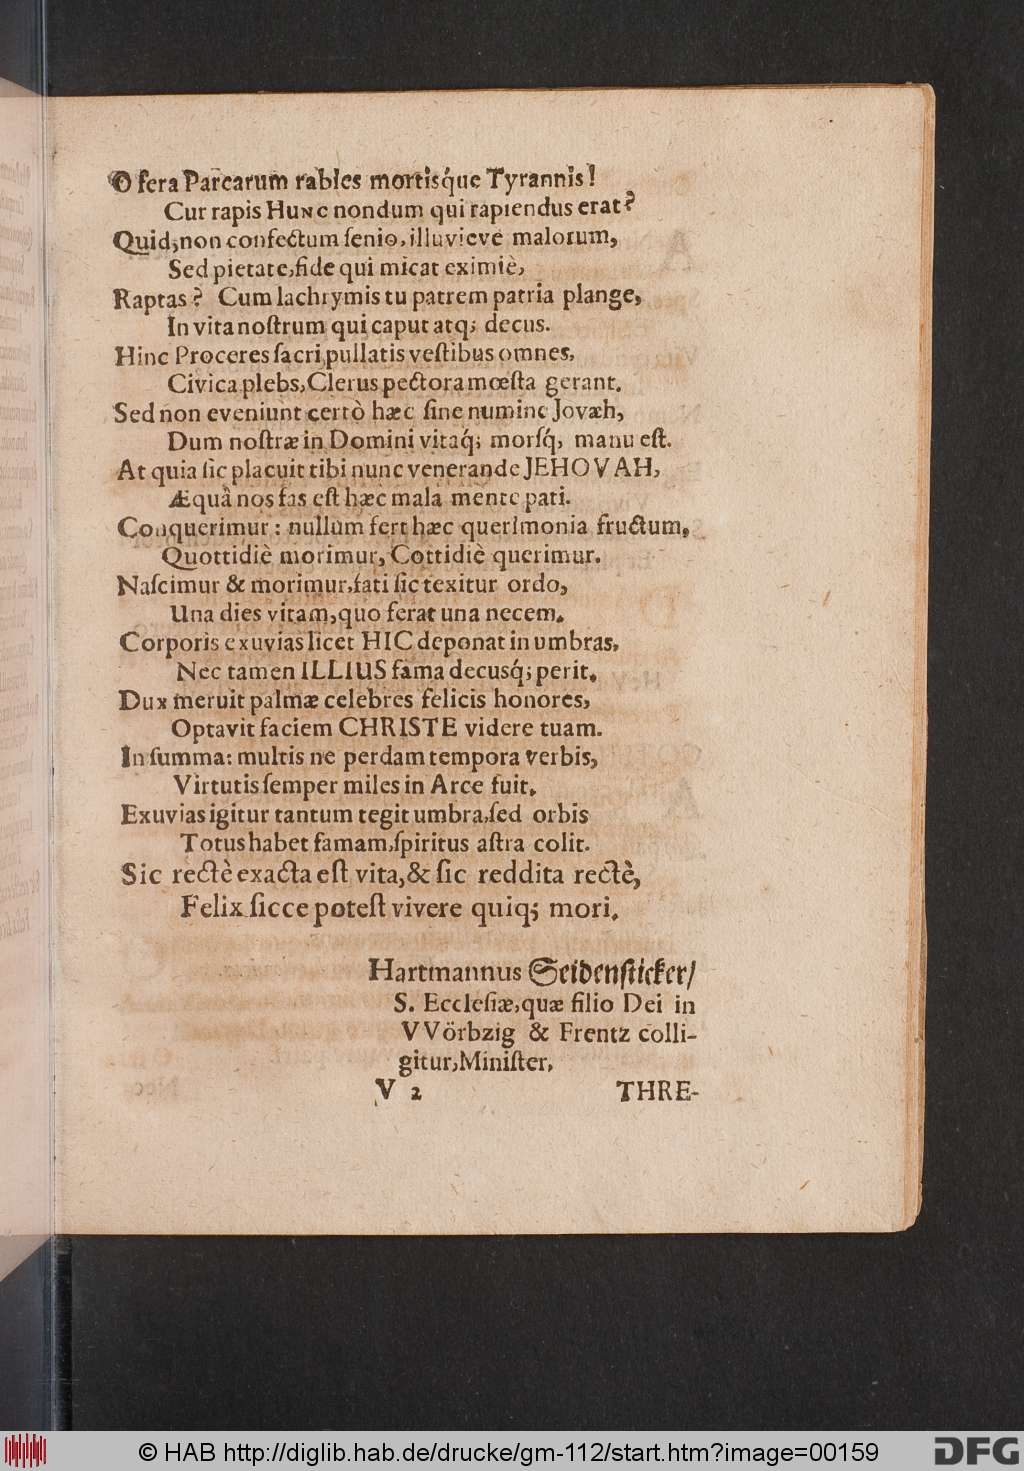 O fera Parcarum rabies mortisq́ue Tyrannis!
Cur rapis HUNC nondum qui rapiendus erat?
Quid;non confectum ſenio,illuvieve malorum,
Sed pietate,fide qui micat eximiè,
Raptas? Cum lachrymis tu patrem patria plange,
In vita noſtrum qui caput atq; decus.
Hinc Proceres ſacri,pullatis veſtibus omnes,
Civica plebs,Clerus pectora mœſta gerant.
Sed non eveniunt certò hæc ſine numine Jovæh,
Dum noſtræ in Domini vitaq́; morſq́; manu eſt.
At quia ſic placuit tibi nunc venerande JEHOVAH,
Æquâ nos fas eſt hæc mala mente pati.
Conquerimur: nullum fert hæc querimonia fructum,
Quottidiè morimur, Cottidiè querimur.
Naſcimur & morimur,fati ſic texitur ordo,
Una dies vitam,quo ferat una necem.
Corporis exuvias licet HIC deponat in umbras,
Nec tamen ILLIUS fama decusq́; perit.
Dux meruit palmæ celebres felicis honores,
Optavit faciem CHRISTE videre tuam.
In ſumma: multis ne perdam tempora verbis,
Virtutis ſemper miles in Arce fuit.
Exuvias igitur tantum tegit umbra,ſed orbis
Totus habet famam,ſpiritus aſtra colit.
Sic rectè exacta eſt vita,& ſic reddita rectè,
Felix ſicce poteſt vivere quiq; mori.
Hartmannus Seidenſticker/
S. Eccleſiæ,quæ filio Dei in
VVörbzig & Frentz colli-
gitur,Miniſter.
V 2 THRE-
© HAB http://diglib.hab.de/drucke/gm-112/start.htm?image=00159
DFG